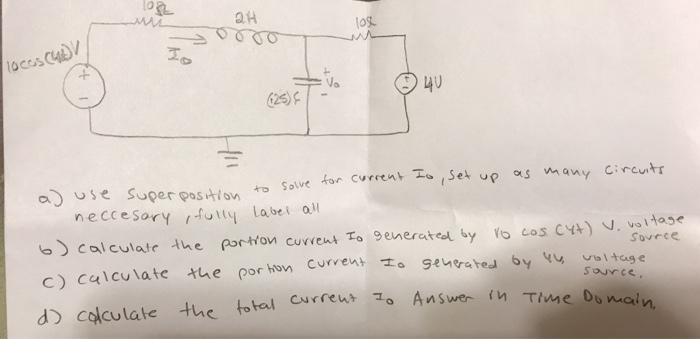 10Ω
2H
10Ω
10cos(4t)V
I₀
+
-
(.25)F
+
V₀
-
+
-
4V
a) use superposition to solve for current I₀, set up as many circuits
neccesary, fully label all
b) calculate the portion current I₀ generated by 10 cos (4t) V. voltage
source
c) calculate the portion current I₀ generated by 4V voltage
source.
d) calculate the total current I₀ Answer in Time Domain.